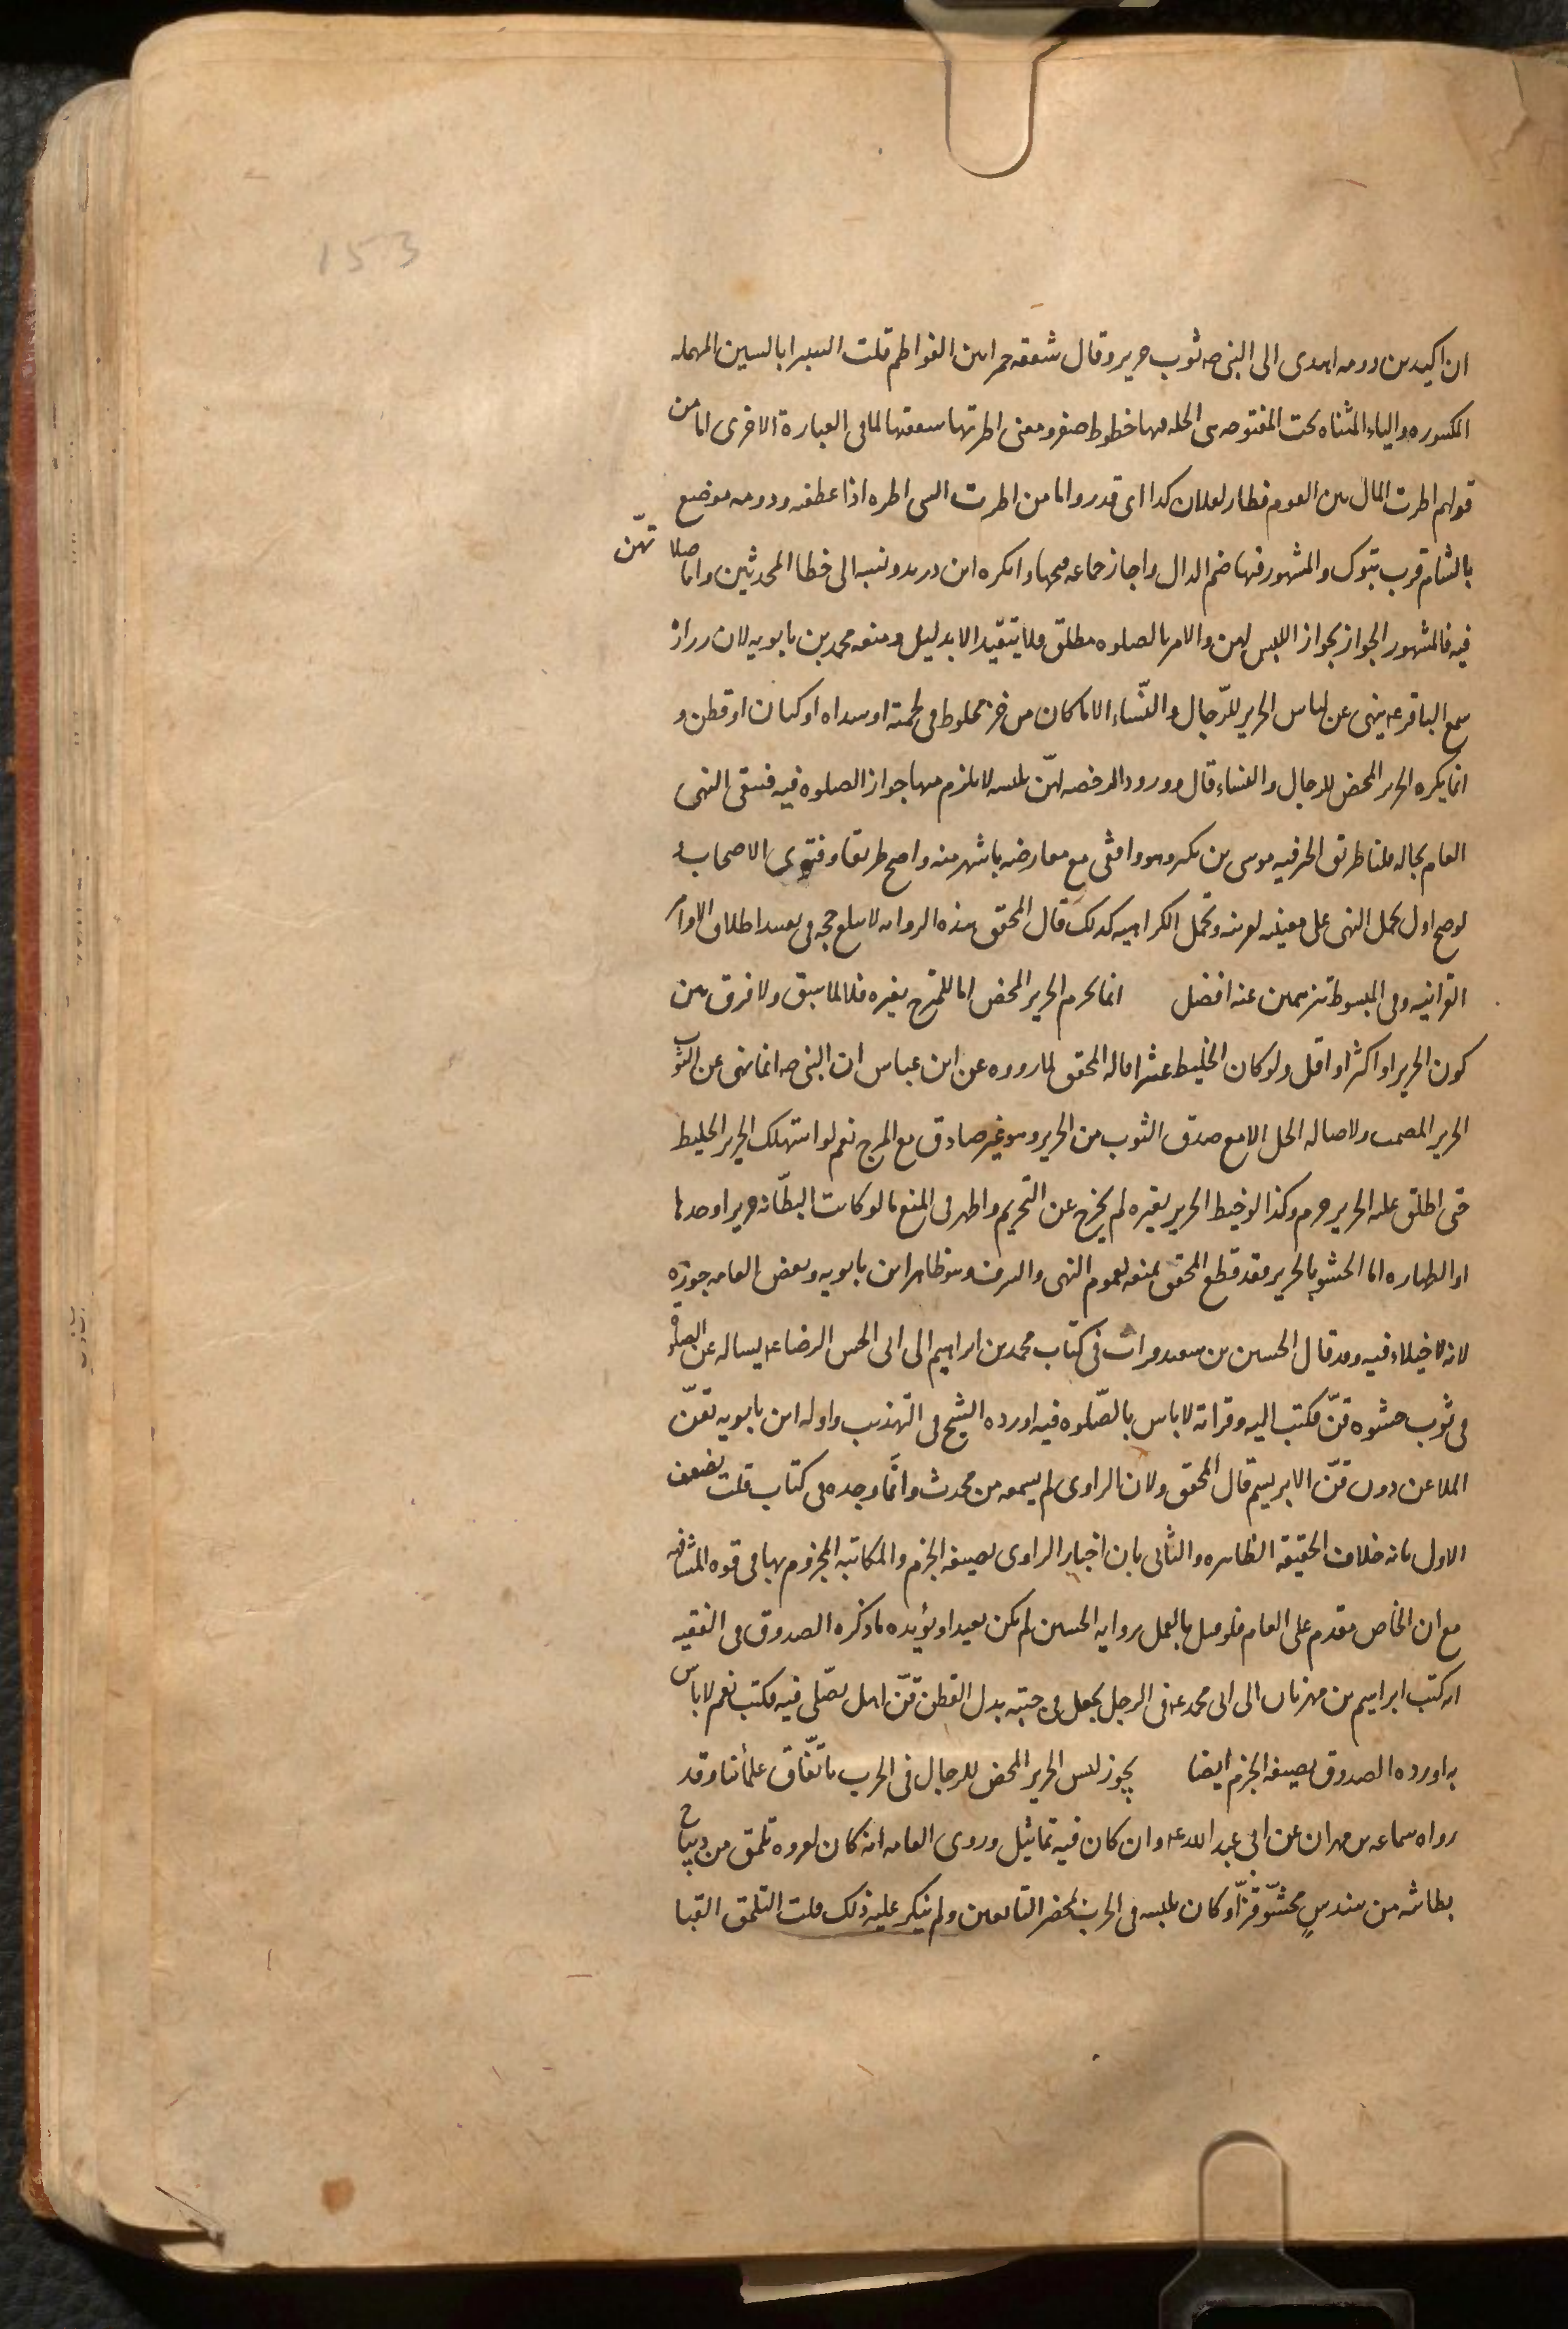 153
ان اكيدر دومه اهدى الى النبى صه ثوب حرير وقال شققه خمرا بين الفواطم قلت السيرا بالسين المهمله
المكسوره والياء المثناه تحت المفتوحه هى الحله فيها خطوط صفر ومعنى اطرتها شققتها لما فى العبارة الاخرى اما من
قولهم اطرت المال بين القوم فطار لفلان كذا اى قدر واما من اطرت الشى اطره اذا عطفه ودومه موضع
بالشام قرب تبوك والمشهور فيها ضم الدال واجاز جماعه فتحها وانكره ابن دريد ونسبه الى خطا المحدثين واما صلاتهن
فيه فالمشهور الجواز بجواز اللبس لهن والامر بالصلوه مطلق فلا يتقيد الا بدليل ومنعه محمد بن بابويه لان زراره
سمع الباقر عه ينهى عن لباس الحرير للرّجال والنّساء الا ما كان من خز مخلوط فى لحمته او سداه او كتان او قطن و
انما يكره الحرير المحض للرجال والنساء قال وورود الرخصه لهنّ بلبسه لا يلزم منها جواز الصلوه فيه فبقى النهى
العام بحاله قلنا طريق الخبر فيه موسى بن بكر وهو واقفى مع معارضه باشهر منه واصح طريقا وفتوى الاصحاب و
لو صح اول بحمل النهى على معنييه لقرينه وتحمل الكراهيه كذلك قال المحقق هذه الروايه لا تبلغ حجه فى تقييد اطلاق الاوامر
القرانيه وفى المبسوط تنزيههن عنه افضل انما يحرم الحرير المحض اما الممتزج بغيره فلا لما سبق ولا فرق بين
كون الحرير او اكثر او اقل ولو كان الخليط عشرا قاله المحقق لما رووه عن ابن عباس ان النبى صه انما نهى عن الثوب
الحرير المصمت ولاصاله الحل الا مع صدق الثوب من الحرير وهو غير صادق مع المزج نعم لو استهلك الحرير الخليط
حتى اطلق عليه الحرير حرم وكذا لو خيط الحرير بغيره لم يخرج عن التحريم واظهر فى المنع ما لو كانت البطّانه حريرا وحدها
او الظهاره اما الحشو بالحرير فقد قطع المحقق بمنعه لعموم النهى والسرف وهو ظاهر ابن بابويه وبعض العامه جوزه
لانه لا خيلاء فيه وقد قال الحسين بن سعيد قرات فى كتاب محمد بن ابراهيم الى ابى الحسن الرضا عه يساله عن الصلوه
فى ثوب حشوه قزّ فكتب اليه وقراته لا باس بالصّلوه فيه اورده الشيخ فى التهذيب واوله ابن بابويه بقزّ
الماعز دون قزّ الابريسم قال المحقق ولان الراوى لم يسمعه من محدث وانّما وجده فى كتاب قلت يضعف
الاول بانه خلاف الحقيقه الظاهره والثانى بان اخبار الراوى بصيغه الجزم والمكاتبه المجزوم بها فى قوه المشافهه
مع ان الخاص مقدم على العام فلو قيل بالعمل بروايه الحسين لم يكن بعيدا ويؤيده ما ذكره الصدوق فى الفقيه
انه كتب ابراهيم بن مهزيار الى ابى محمد عه فى الرجل يجعل فى جبته بدل القطن قزّ اهل يصّلى فيه فكتب نعم لا باس
به اورده الصدوق بصيغه الجزم ايضا يجوز لبس الحرير المحض للرجال فى الحرب باتّفاق علمائنا وقد
رواه سماعه بن مهران عن ابى عبد الله عه وان كان فيه تماثيل وروى العامه انه كان لعروه يلمق من ديباج
بطانته من سندسٍ محشّو قزّا وكان يلبسه فى الحرب بمحضر التابعين ولم ينكر عليه ذلك قلت اليلمق القبا